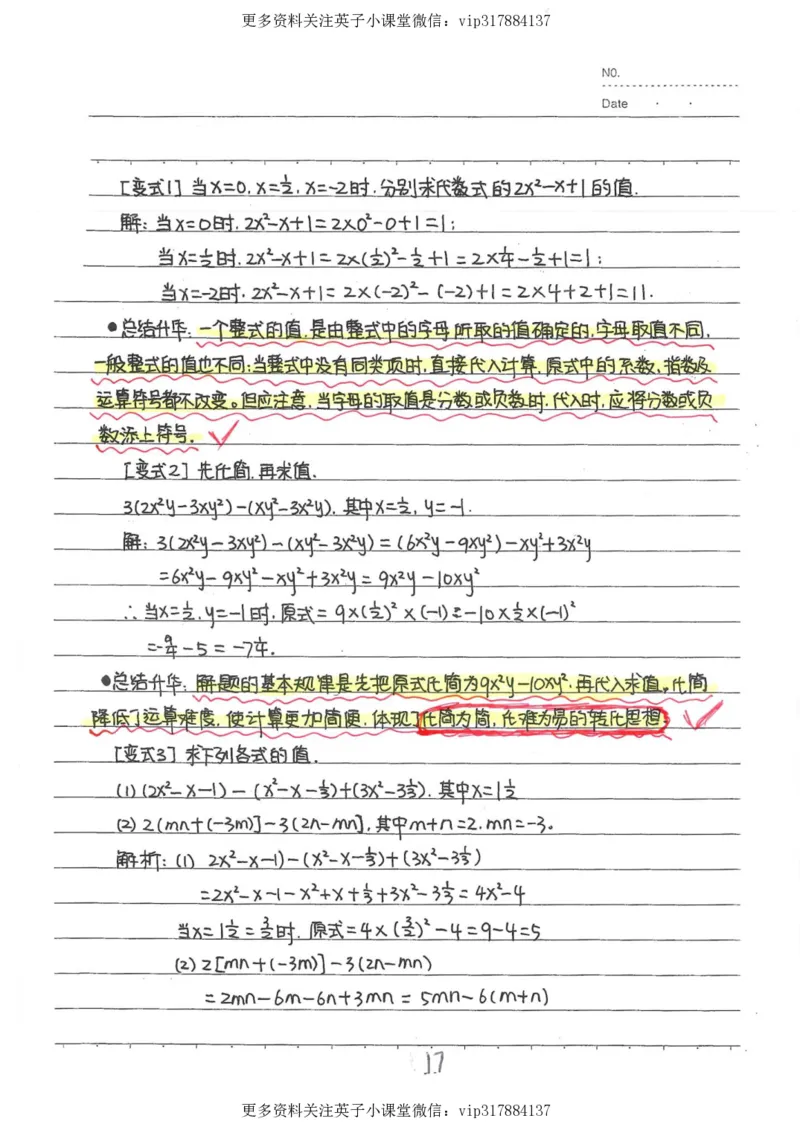 更多资料关注英子小课堂微信：vip317884137
NO.
Date
[变式1] 当x=0, x=½, x=-2时, 分别求代数式的2x²-x+1的值.
解: 当x=0时, 2x²-x+1=2×0²-0+1=1;
当x=½时, 2x²-x+1=2×(½)²-½+1=2×¼-½+1=1;
当x=-2时, 2x²-x+1=2×(-2)²-(-2)+1=2×4+2+1=11.
●总结升华: 一个整式的值, 是由整式中的字母所取的值确定的, 字母取值不同,
一般整式的值也不同; 当整式中没有同类项时, 直接代入计算, 原式中的系数、指数及
运算符号都不改变。但应注意, 当字母的取值是分数或负数时, 代入时, 应将分数或负
数添上符号.
[变式2] 先化简, 再求值.
3(2x²y-3xy²)-(xy²-3x²y), 其中x=½, y=-1.
解: 3(2x²y-3xy²)-(xy²-3x²y)=(6x²y-9xy²)-xy²+3x²y
=6x²y-9xy²-xy²+3x²y=9x²y-10xy²
∴当x=½, y=-1时, 原式=9×(½)²×(-1)-10×½×(-1)²
=-9/4-5=-7¼.
●总结升华: 解题的基本规律是先把原式化简为9x²y-10xy², 再代入求值, 化简
降低了运算难度, 使计算更加简便, 体现了化简为简, 化难为易的转化思想
[变式3] 求下列各式的值.
(1) (2x²-x-1)-(x²-x-⅓)+(3x²-3⅓), 其中x=1½
(2) 2(mn+(-3m)]-3(2n-mn], 其中m+n=2, mn=-3。
解析: (1) 2x²-x-1)-(x²-x-⅓)+(3x²-3⅓)
=2x²-x-1-x²+x+⅓+3x²-3⅓=4x²-4
当x=1½=3/2时, 原式=4×(3/2)²-4=9-4=5
(2) 2[mn+(-3m)]-3(2n-mn)
=2mn-6m-6n+3mn=5mn-6(m+n)
17
更多资料关注英子小课堂微信：vip317884137